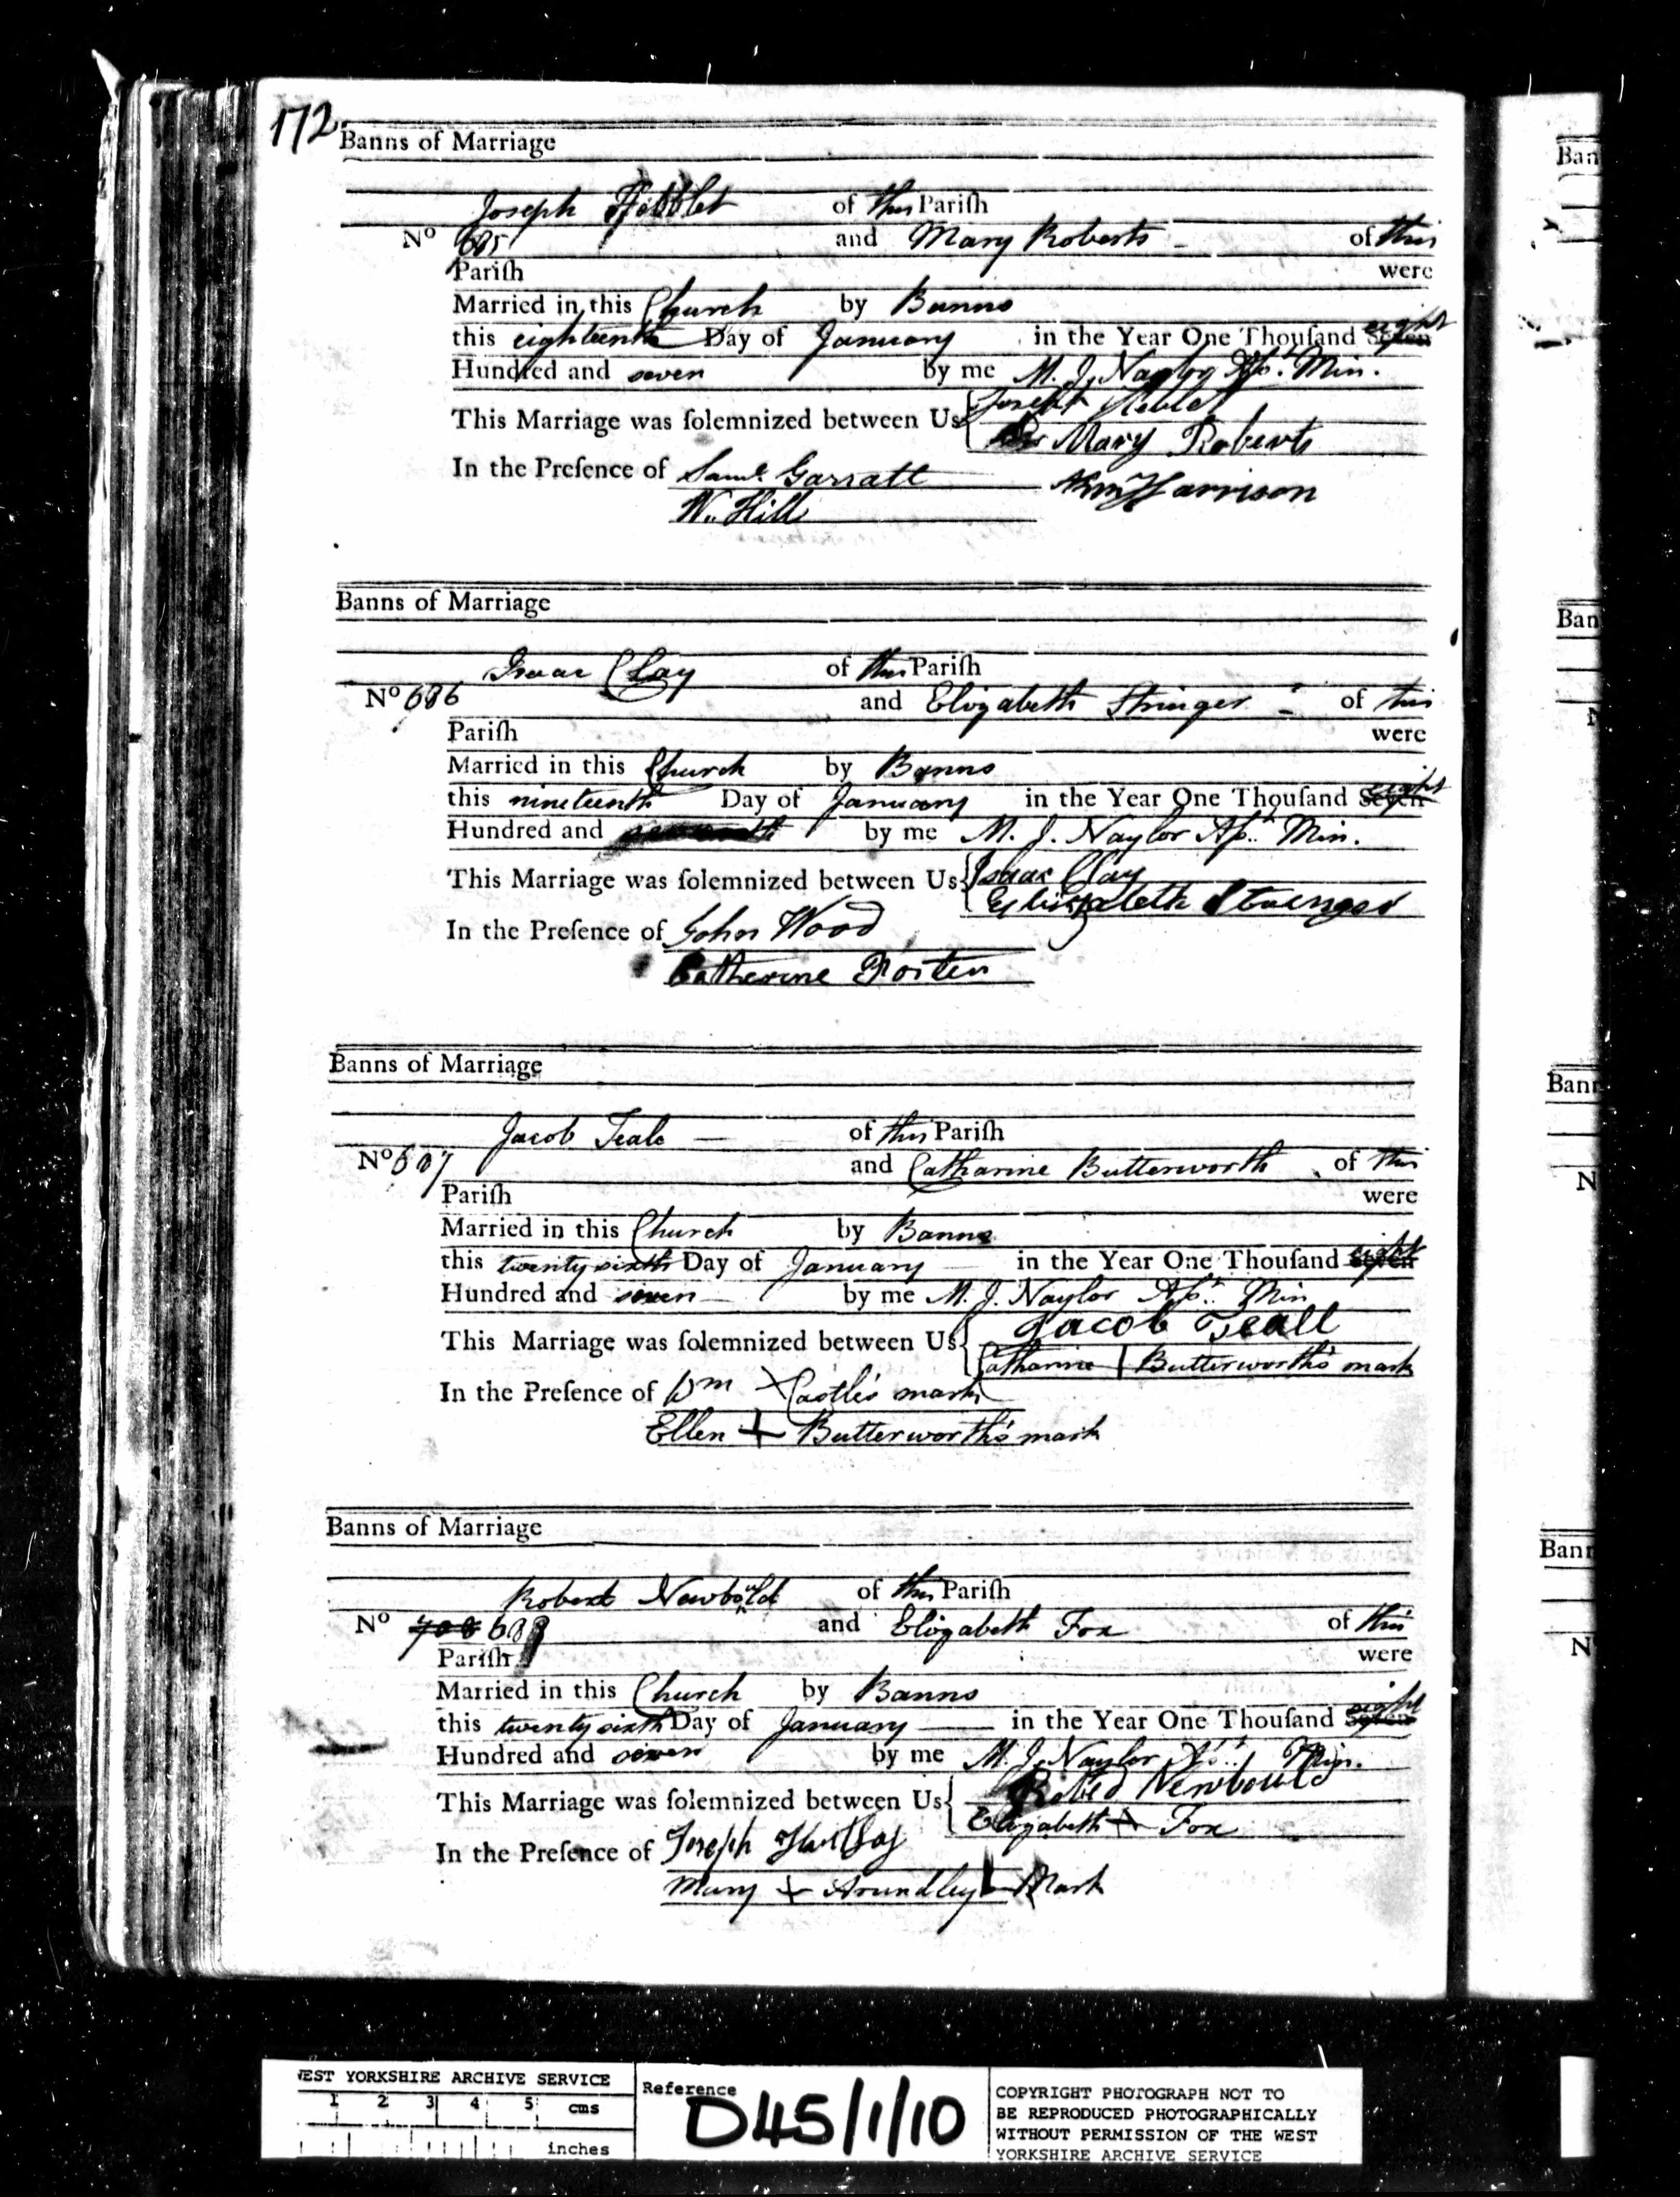 172.
Banns of Marriage
Joseph Hebblet of this Parish
No 685 and Mary Roberts - of this
Parish were
Married in this Church by Banns
this eighteenth Day of January in the Year One Thousand Seven eight
Hundred and seven by me M. J. Naylor Apt. Min.
This Marriage was solemnized between Us Joseph Heblet
Mary Roberts
In the Presence of Saml. Garratt
W. Hill Harrison
Banns of Marriage
Isaac Clay of this Parish
No 686 and Elizabeth Stringer - of this
Parish were
Married in this Church by Banns
this nineteenth Day of January in the Year One Thousand Seven eight
Hundred and by me M. J. Naylor Apt. Min.
This Marriage was solemnized between Us Isaac Clay
In the Presence of John Wood
Catherine
Banns of Marriage
Jacob Teale - of this Parish
No 687 and Catharine Butterworth of this
Parish were
Married in this Church by Banns
this twenty sixth Day of January in the Year One Thousand Seven eight
Hundred and seven by me M. J. Naylor Apt. Min
This Marriage was solemnized between Us Jacob Teall
Catharine | Butterworth's mark
In the Presence of Wm X Castle's mark
Ellen + Butterworth's mark
Banns of Marriage
Robert Newbould of this Parish
No 708 688 and Elizabeth Fox of this
Parish were
Married in this Church by Banns
this twenty sixth Day of January in the Year One Thousand Seven eight
Hundred and seven by me M. J. Naylor Apt. Min.
This Marriage was solemnized between Us Newbould
Elizabeth + Fox
In the Presence of Joseph
Mary + Arundley Mark
WEST YORKSHIRE ARCHIVE SERVICE
1 2 3 4 5 cms
inches
Reference
D45/1/10
COPYRIGHT PHOTOGRAPH NOT TO
BE REPRODUCED PHOTOGRAPHICALLY
WITHOUT PERMISSION OF THE WEST
YORKSHIRE ARCHIVE SERVICE
Ban
Ban
N
Bann
N
Bann
N